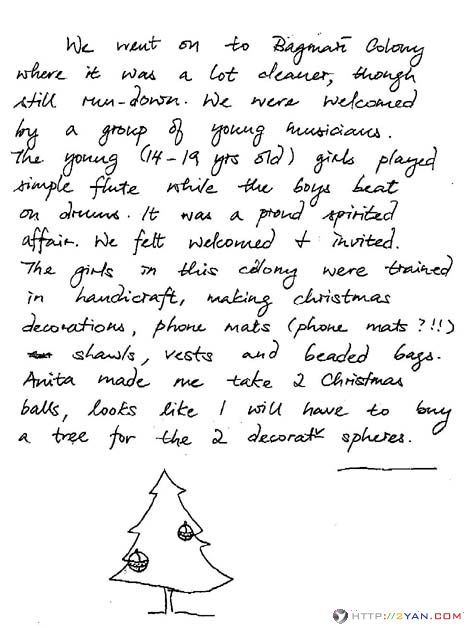 We went on to Bagmari Colony
where it was a lot cleaner, though
still run-down. We were welcomed
by a group of young musicians.
The young (14-19 yrs old) girls played
simple flute while the boys beat
on drums. It was a proud spirited
affair. We felt welcomed & invited.
The girls in this colony were trained
in handicraft, making christmas
decorations, phone mats (phone mats?!!)
shawls, vests and beaded bags.
Anita made me take 2 Christmas
balls, looks like I will have to buy
a tree for the 2 decoratv spheres.
HTTP://2YAN.COM